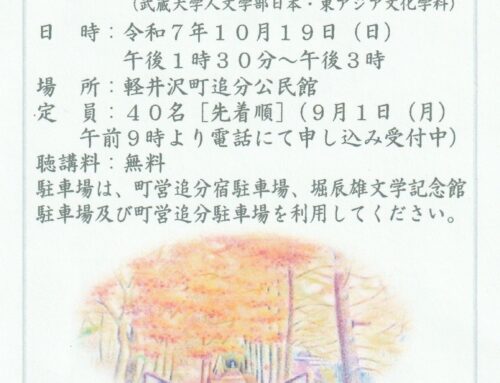 (武蔵大学人文学部日本・東アジア文化学科)
日　時：令和７年１０月１９日（日）
午後１時３０分～午後３時
場　所：軽井沢町追分公民館
定　員：４０名［先着順］（９月１日（月）
午前９時より電話にて申し込み受付中）
聴講料：無料
駐車場は、町営追分宿駐車場、堀辰雄文学記念館
駐車場及び町営追分駐車場を利用してください。